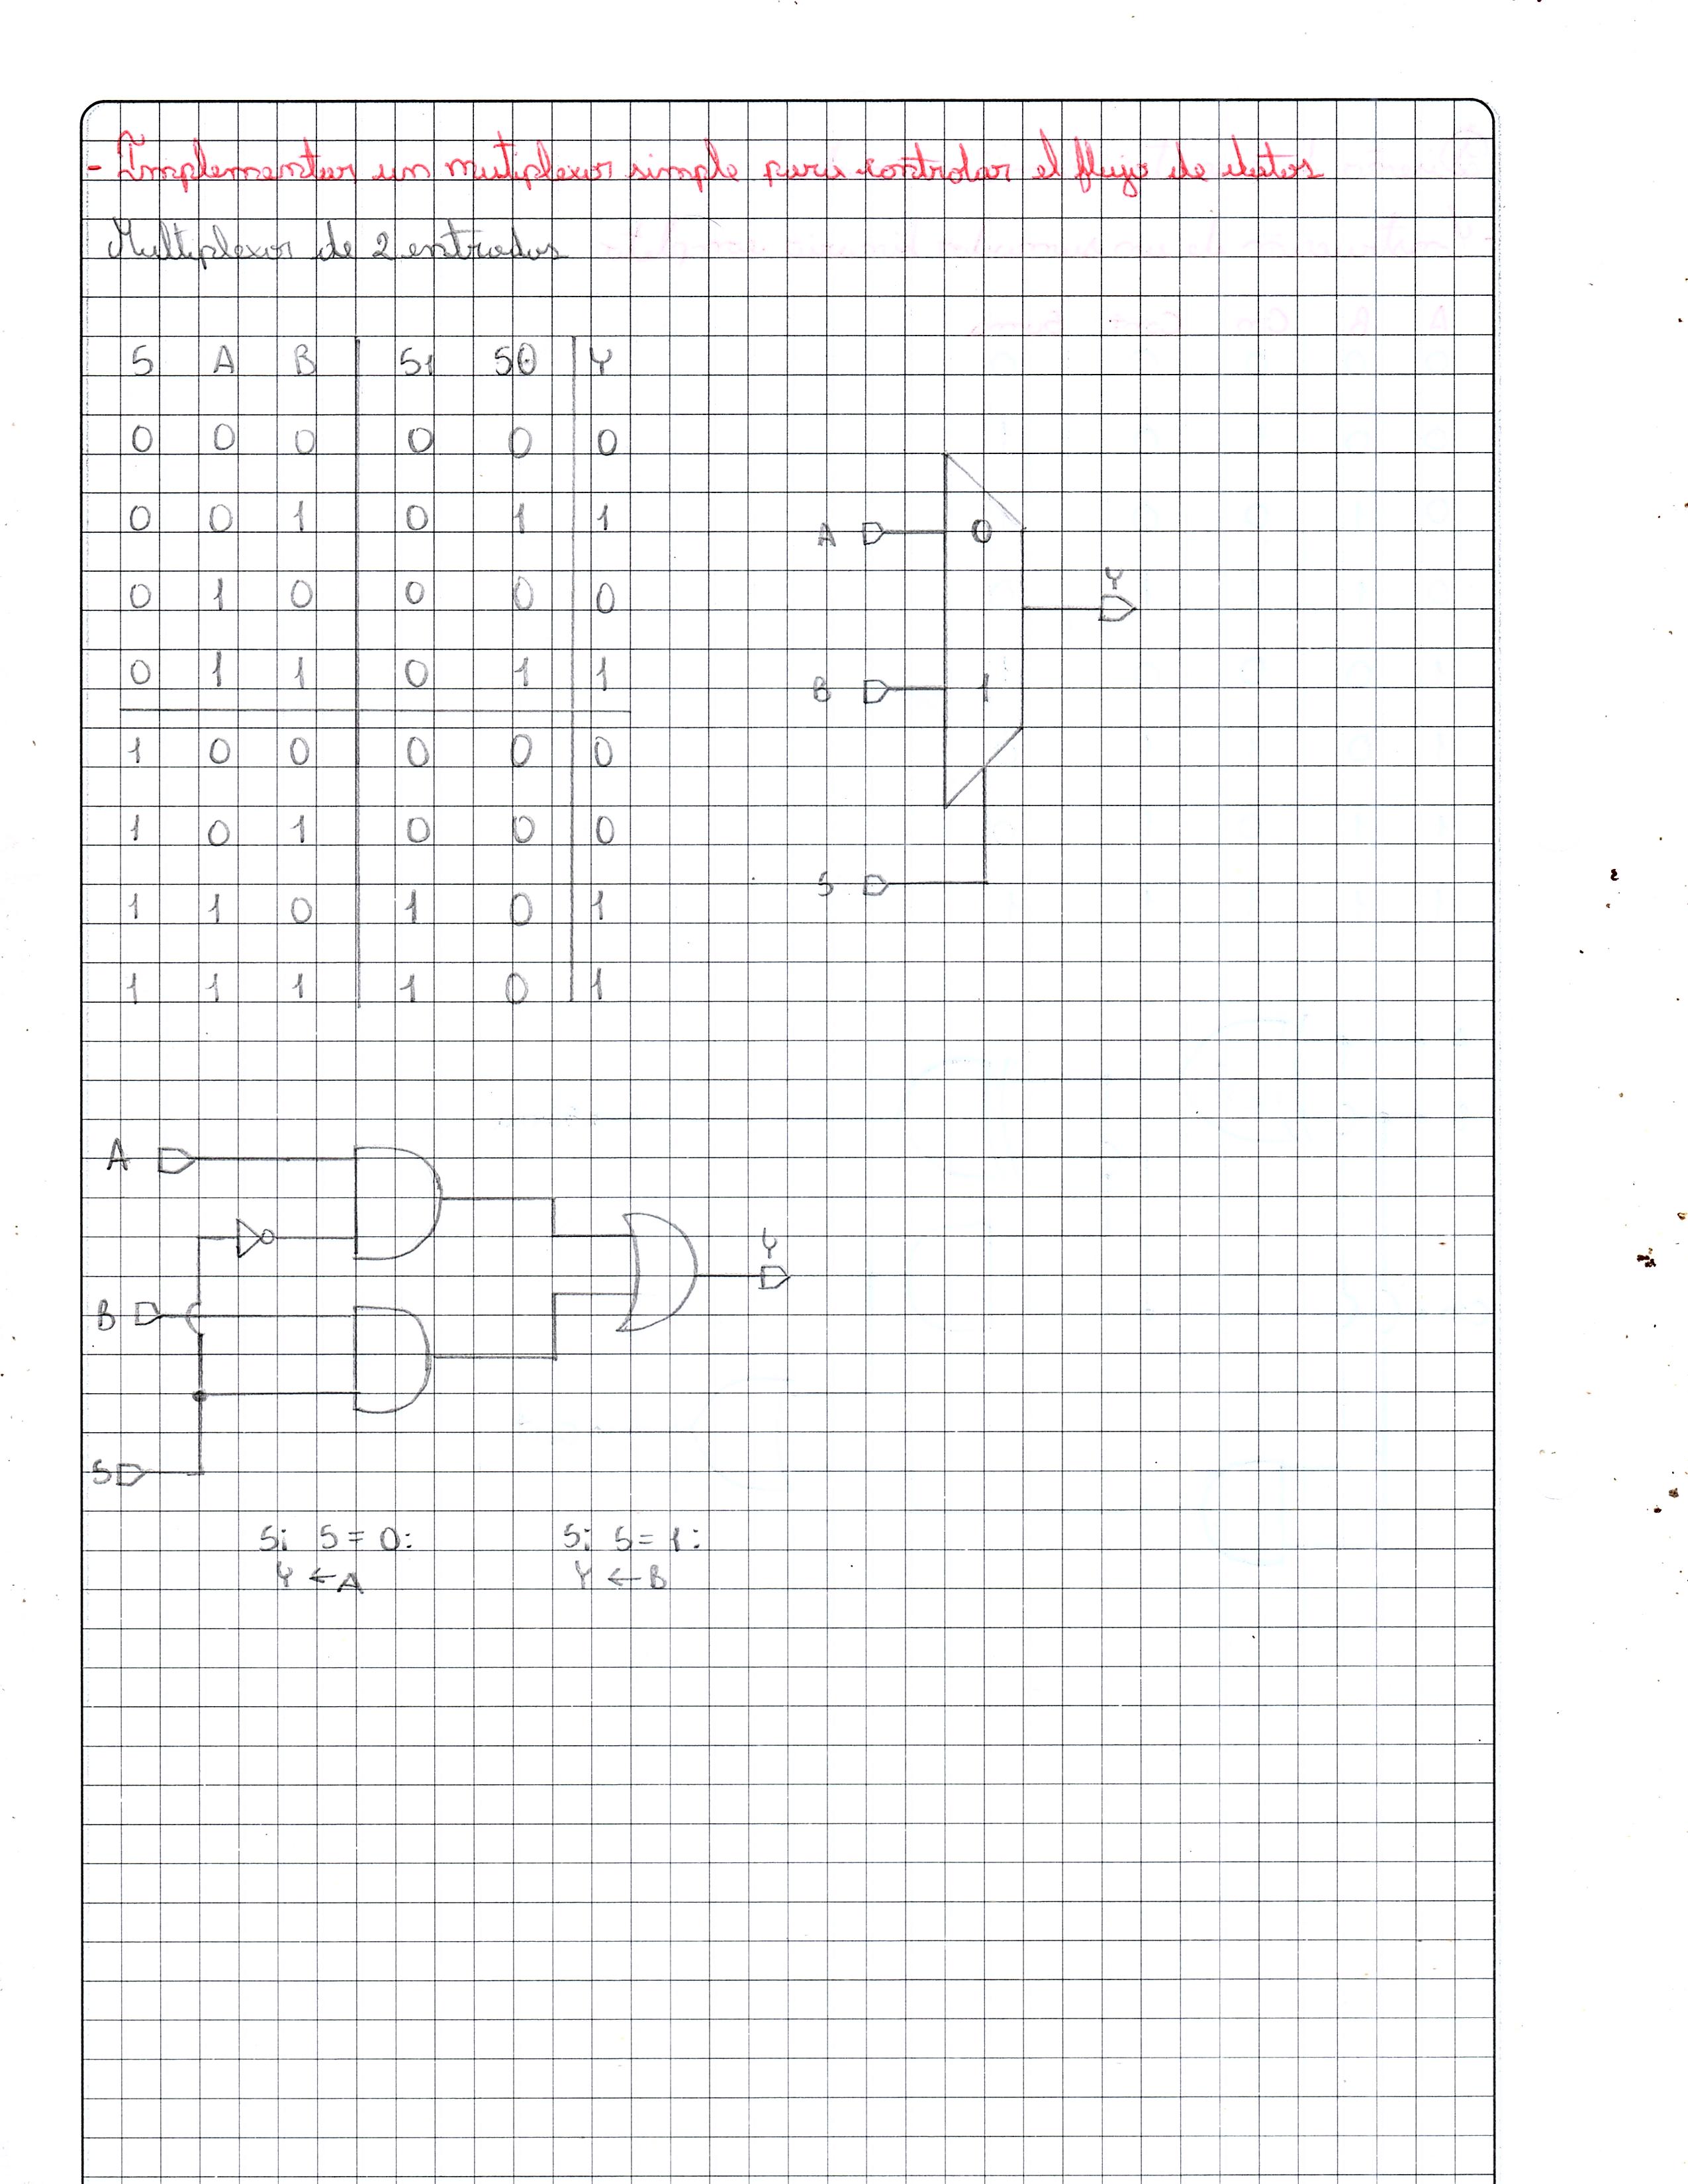 - Implementar un mutiplexor simple para controlar el flujo de datos
Multiplexor de 2 entradas
S A B S1 S0 Y
0 0 0 0 0 0
0 0 1 0 1 1
0 1 0 0 0 0
0 1 1 0 1 1
1 0 0 0 0 0
1 0 1 0 0 0
1 1 0 1 0 1
1 1 1 1 0 1
A 0
Y
B 1
S
A
Y
B
S
Si S = 0: Si S = 1:
Y ← A Y ← B